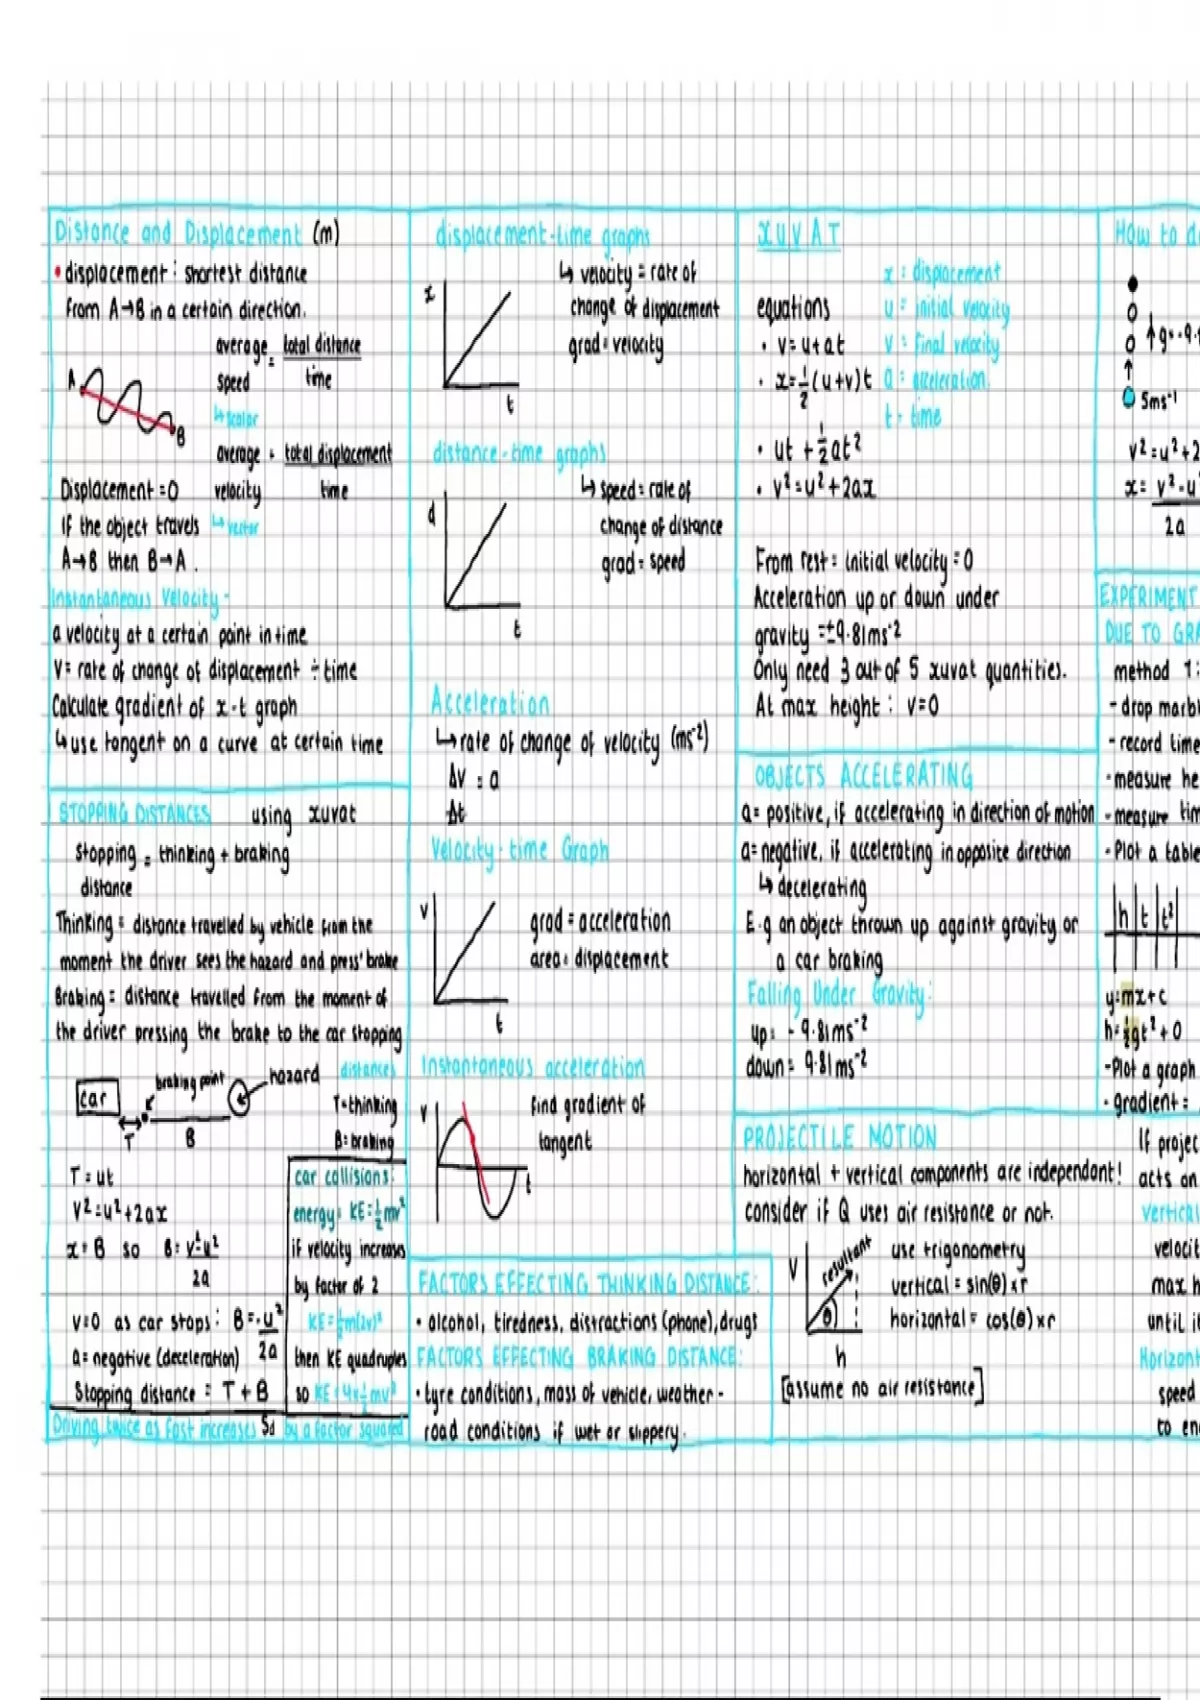 Distance and Displacement (m)
• displacement : shortest distance
from A→B in a certain direction.
average = total distance
speed time
↳ scalar
A
B
average = total displacement
velocity time
↳ vector
Displacement = 0
if the object travels
A→B then B→A .
Instantaneous Velocity -
a velocity at a certain point in time
V = rate of change of displacement ÷ time
Calculate gradient of x-t graph
↳ use tangent on a curve at certain time
STOPPING DISTANCES using xuvat
stopping = thinking + braking
distance
Thinking = distance travelled by vehicle from the
moment the driver sees the hazard and press' brake
Braking = distance travelled from the moment of
the driver pressing the brake to the car stopping
car
braking point
hazard
T
B
distances
T=thinking
B=braking
T = ut
V² = u² + 2ax
x = B so B = v²-u²
2a
v=0 as car stops : B = -u²
2a
a = negative (deceleration)
Stopping distance = T + B
Driving twice as fast increases Sd by a factor squared
car collisions:
energy: KE = ½mv²
if velocity increases
by factor of 2
KE = ½m(2v)²
then KE quadruples
so KE = 4×½mv²
displacement-time graphs
x
t
↳ velocity = rate of
change of displacement
grad = velocity
distance-time graphs
d
t
↳ speed = rate of
change of distance
grad = speed
Acceleration
↳ rate of change of velocity (ms⁻²)
Δv = a
Δt
Velocity-time Graph
v
t
grad = acceleration
area = displacement
Instantaneous acceleration
v
t
find gradient of
tangent
FACTORS EFFECTING THINKING DISTANCE:
• alcohol, tiredness, distractions (phone), drugs
FACTORS EFFECTING BRAKING DISTANCE:
• tyre conditions, mass of vehicle, weather -
road conditions if wet or slippery.
XUVAT
x = displacement
u = initial velocity
v = final velocity
a = acceleration
t = time
equations
• v = u + at
• x = ½(u+v)t
• ut + ½at²
• v² = u² + 2ax
From rest = initial velocity = 0
Acceleration up or down under
gravity = ±9.81ms⁻²
Only need 3 out of 5 xuvat quantities.
At max height : v=0
OBJECTS ACCELERATING
a = positive, if accelerating in direction of motion
a = negative, if accelerating in opposite direction
↳ decelerating
E.g an object thrown up against gravity or
a car braking
Falling Under Gravity:
up = - 9.81ms⁻²
down = 9.81ms⁻²
PROJECTILE MOTION
horizontal + vertical components are independant!
consider if Q uses air resistance or not.
V
resultant
θ
h
use trigonometry
vertical = sin(θ)×r
horizontal = cos(θ)×r
[assume no air resistance]
How to d
g = -9.
5ms⁻¹
v² = u² + 2
x = v² - u
2a
EXPERIMENT
DUE TO GRA
method 1:
- drop marb
- record time
- measure he
- measure tim
- Plot a table
h t t²
y = mx + c
h = ½gt² + 0
- Plot a graph
- gradient =
If projec
acts on
vertical
velocit
max h
until i
Horizont
speed
to en